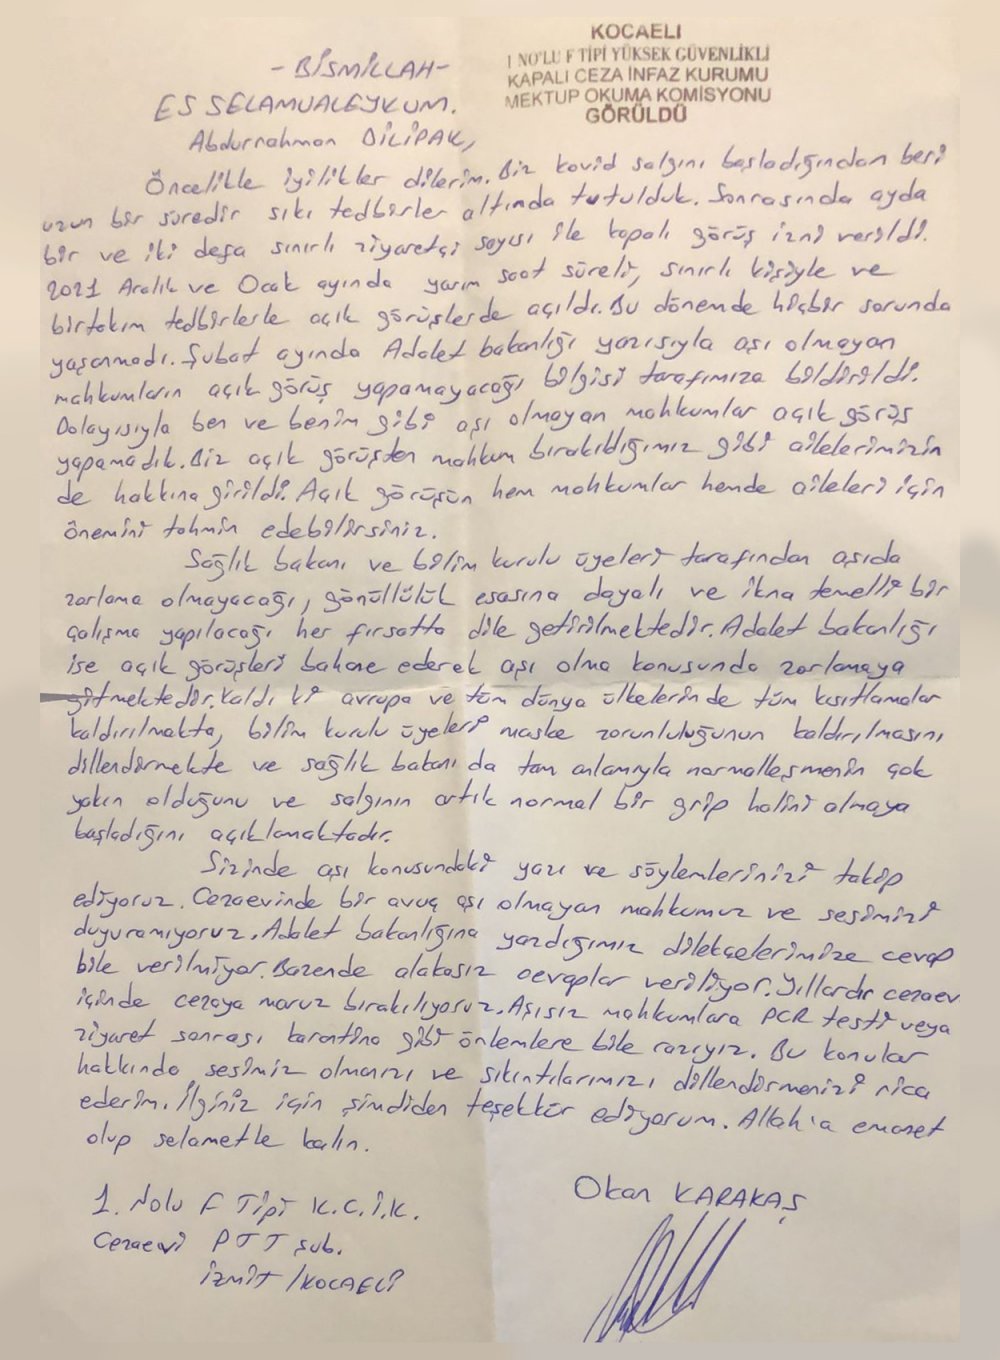 KOCAELİ
1 NO'LU F TİPİ YÜKSEK GÜVENLİKLİ
KAPALI CEZA İNFAZ KURUMU
MEKTUP OKUMA KOMİSYONU
GÖRÜLDÜ
- BİSMİLLAH -
ES SELAMUALEYKUM.
Abdurrahman DİLİPAK,
Öncelikle iyilikler dilerim. Biz kovid salgını başladığından beri
uzun bir süredir sıkı tedbirler altında tutulduk. Sonrasında ayda
bir ve iki defa sınırlı ziyaretçi sayısı ile kapalı görüş izni verildi.
2021 Aralık ve Ocak ayında yarım saat süreli, sınırlı kişiyle ve
birtakım tedbirlerle açık görüşlerde açıldı. Bu dönemde hiçbir sorunda
yaşanmadı. Şubat ayında Adalet bakanlığı yazısıyla aşı olmayan
mahkumların açık görüş yapamayacağı bilgisi tarafımıza bildirildi.
Dolayısıyla ben ve benim gibi aşı olmayan mahkumlar açık görüş
yapamadık. Biz açık görüşten mahkum bırakıldığımız gibi ailelerimizin
de hakkına girildi. Açık görüşün hem mahkumlar hemde aileleri için
önemini tahmin edebilirsiniz.
Sağlık bakanı ve bilim kurulu üyeleri tarafından aşıda
zorlama olmayacağı, gönüllülük esasına dayalı ve ikna temelli bir
çalışma yapılacağı her fırsatta dile getirilmektedir. Adalet bakanlığı
ise açık görüşleri bahane ederek aşı olma konusunda zorlamaya
gitmektedir. Kaldı ki avrupa ve tüm dünya ülkelerinde tüm kısıtlamalar
kaldırılmakta, bilim kurulu üyeleri maske zorunluluğunun kaldırılmasını
dillendirmekte ve sağlık bakanı da tam anlamıyla normalleşmenin çok
yakın olduğunu ve salgının artık normal bir grip halini almaya
başladığını açıklamaktadır.
Sizinde aşı konusundaki yazı ve söylemlerinizi takip
ediyoruz. Cezaevinde bir avuç aşı olmayan mahkumuz ve sesimizi
duyuramıyoruz. Adalet bakanlığına yazdığımız dilekçelerimize cevap
bile verilmiyor. Bazende alakasız cevaplar veriliyor. Yıllardır cezaev
içinde cezaya maruz bırakılıyoruz. Aşısız mahkumlara PCR testi veya
ziyaret sonrası karantina gibi önlemlere bile razıyız. Bu konular
hakkında sesimiz olmanızı ve sıkıntılarımızı dillendirmenizi rica
ederim. İlginiz için şimdiden teşekkür ediyorum. Allah'a emanet
olup selametle kalın.
Okan KARAKAŞ
1. Nolu F Tipi K.C.İ.K.
Cezaevi PTT şub.
İZMİT / KOCAELİ